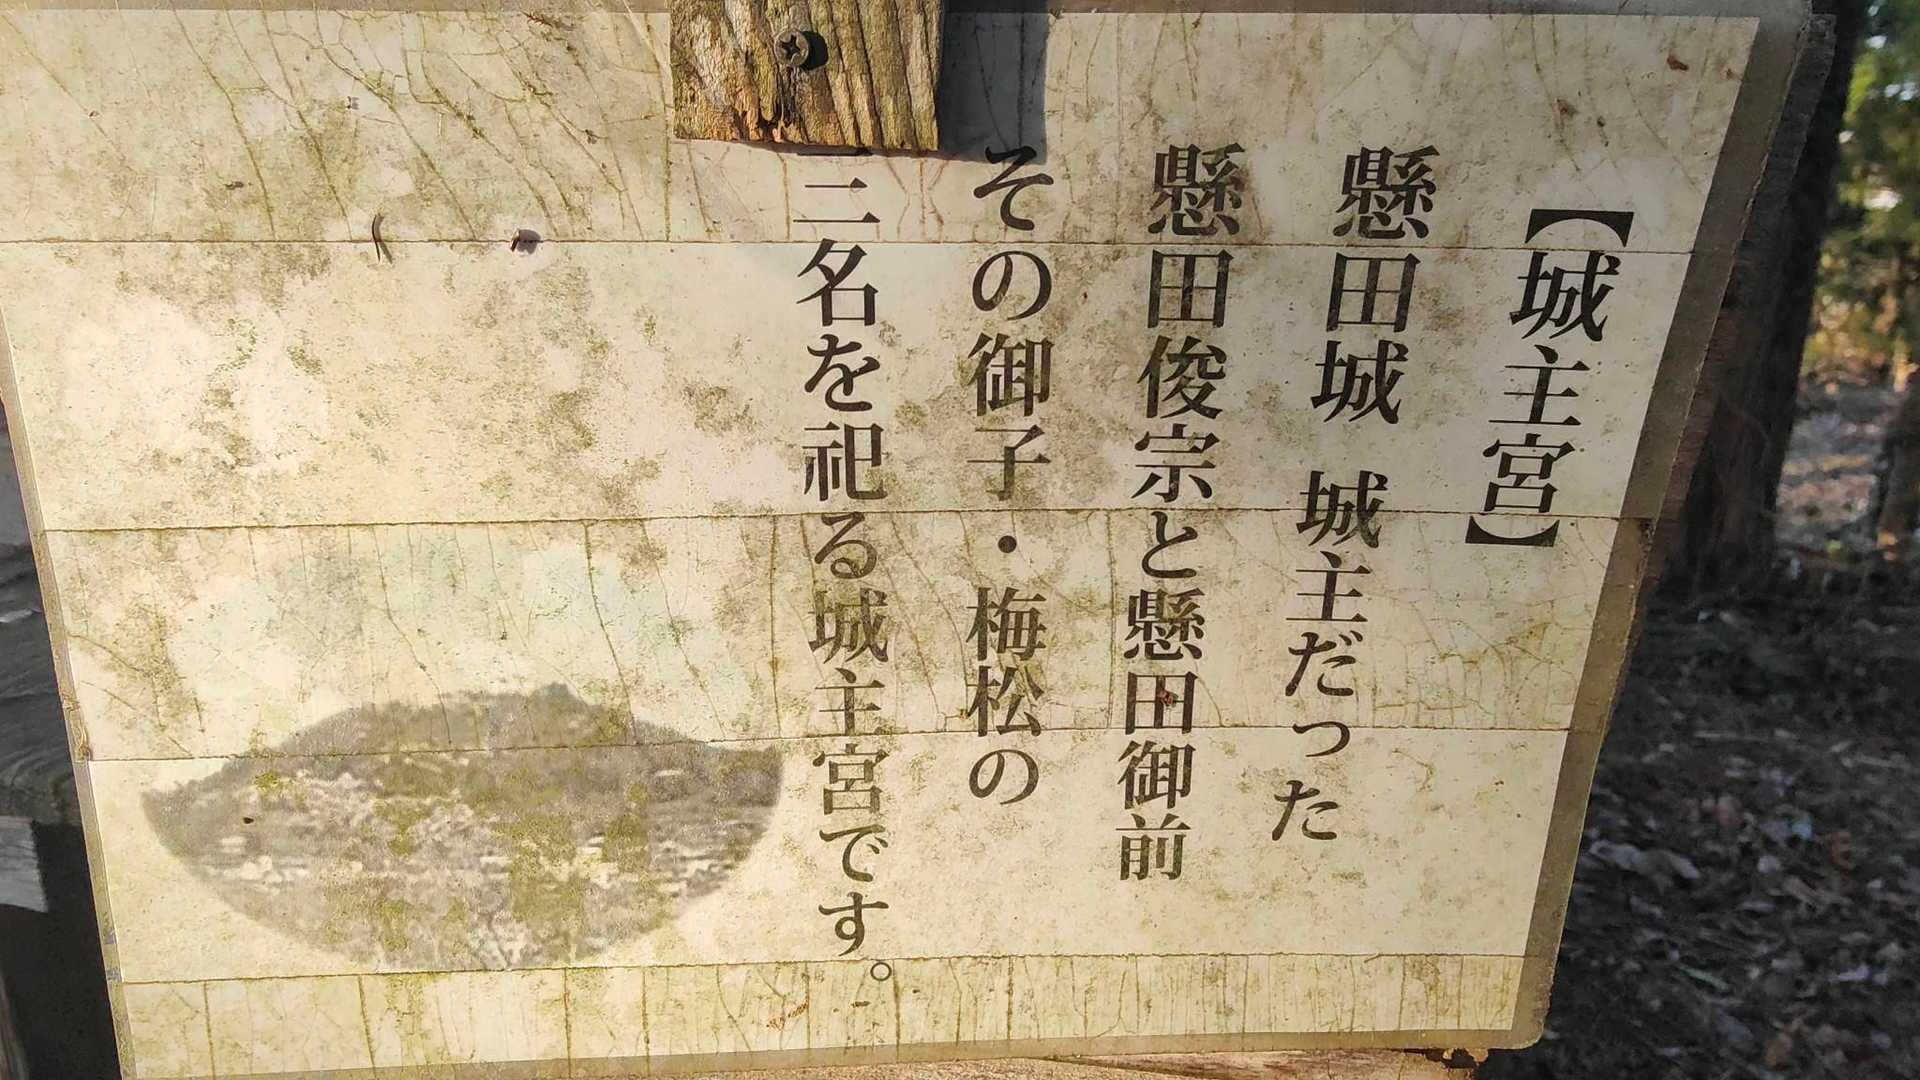 【城主宮】
懸田城 城主だった
懸田俊宗と懸田御前
その御子・梅松の
三名を祀る城主宮です。